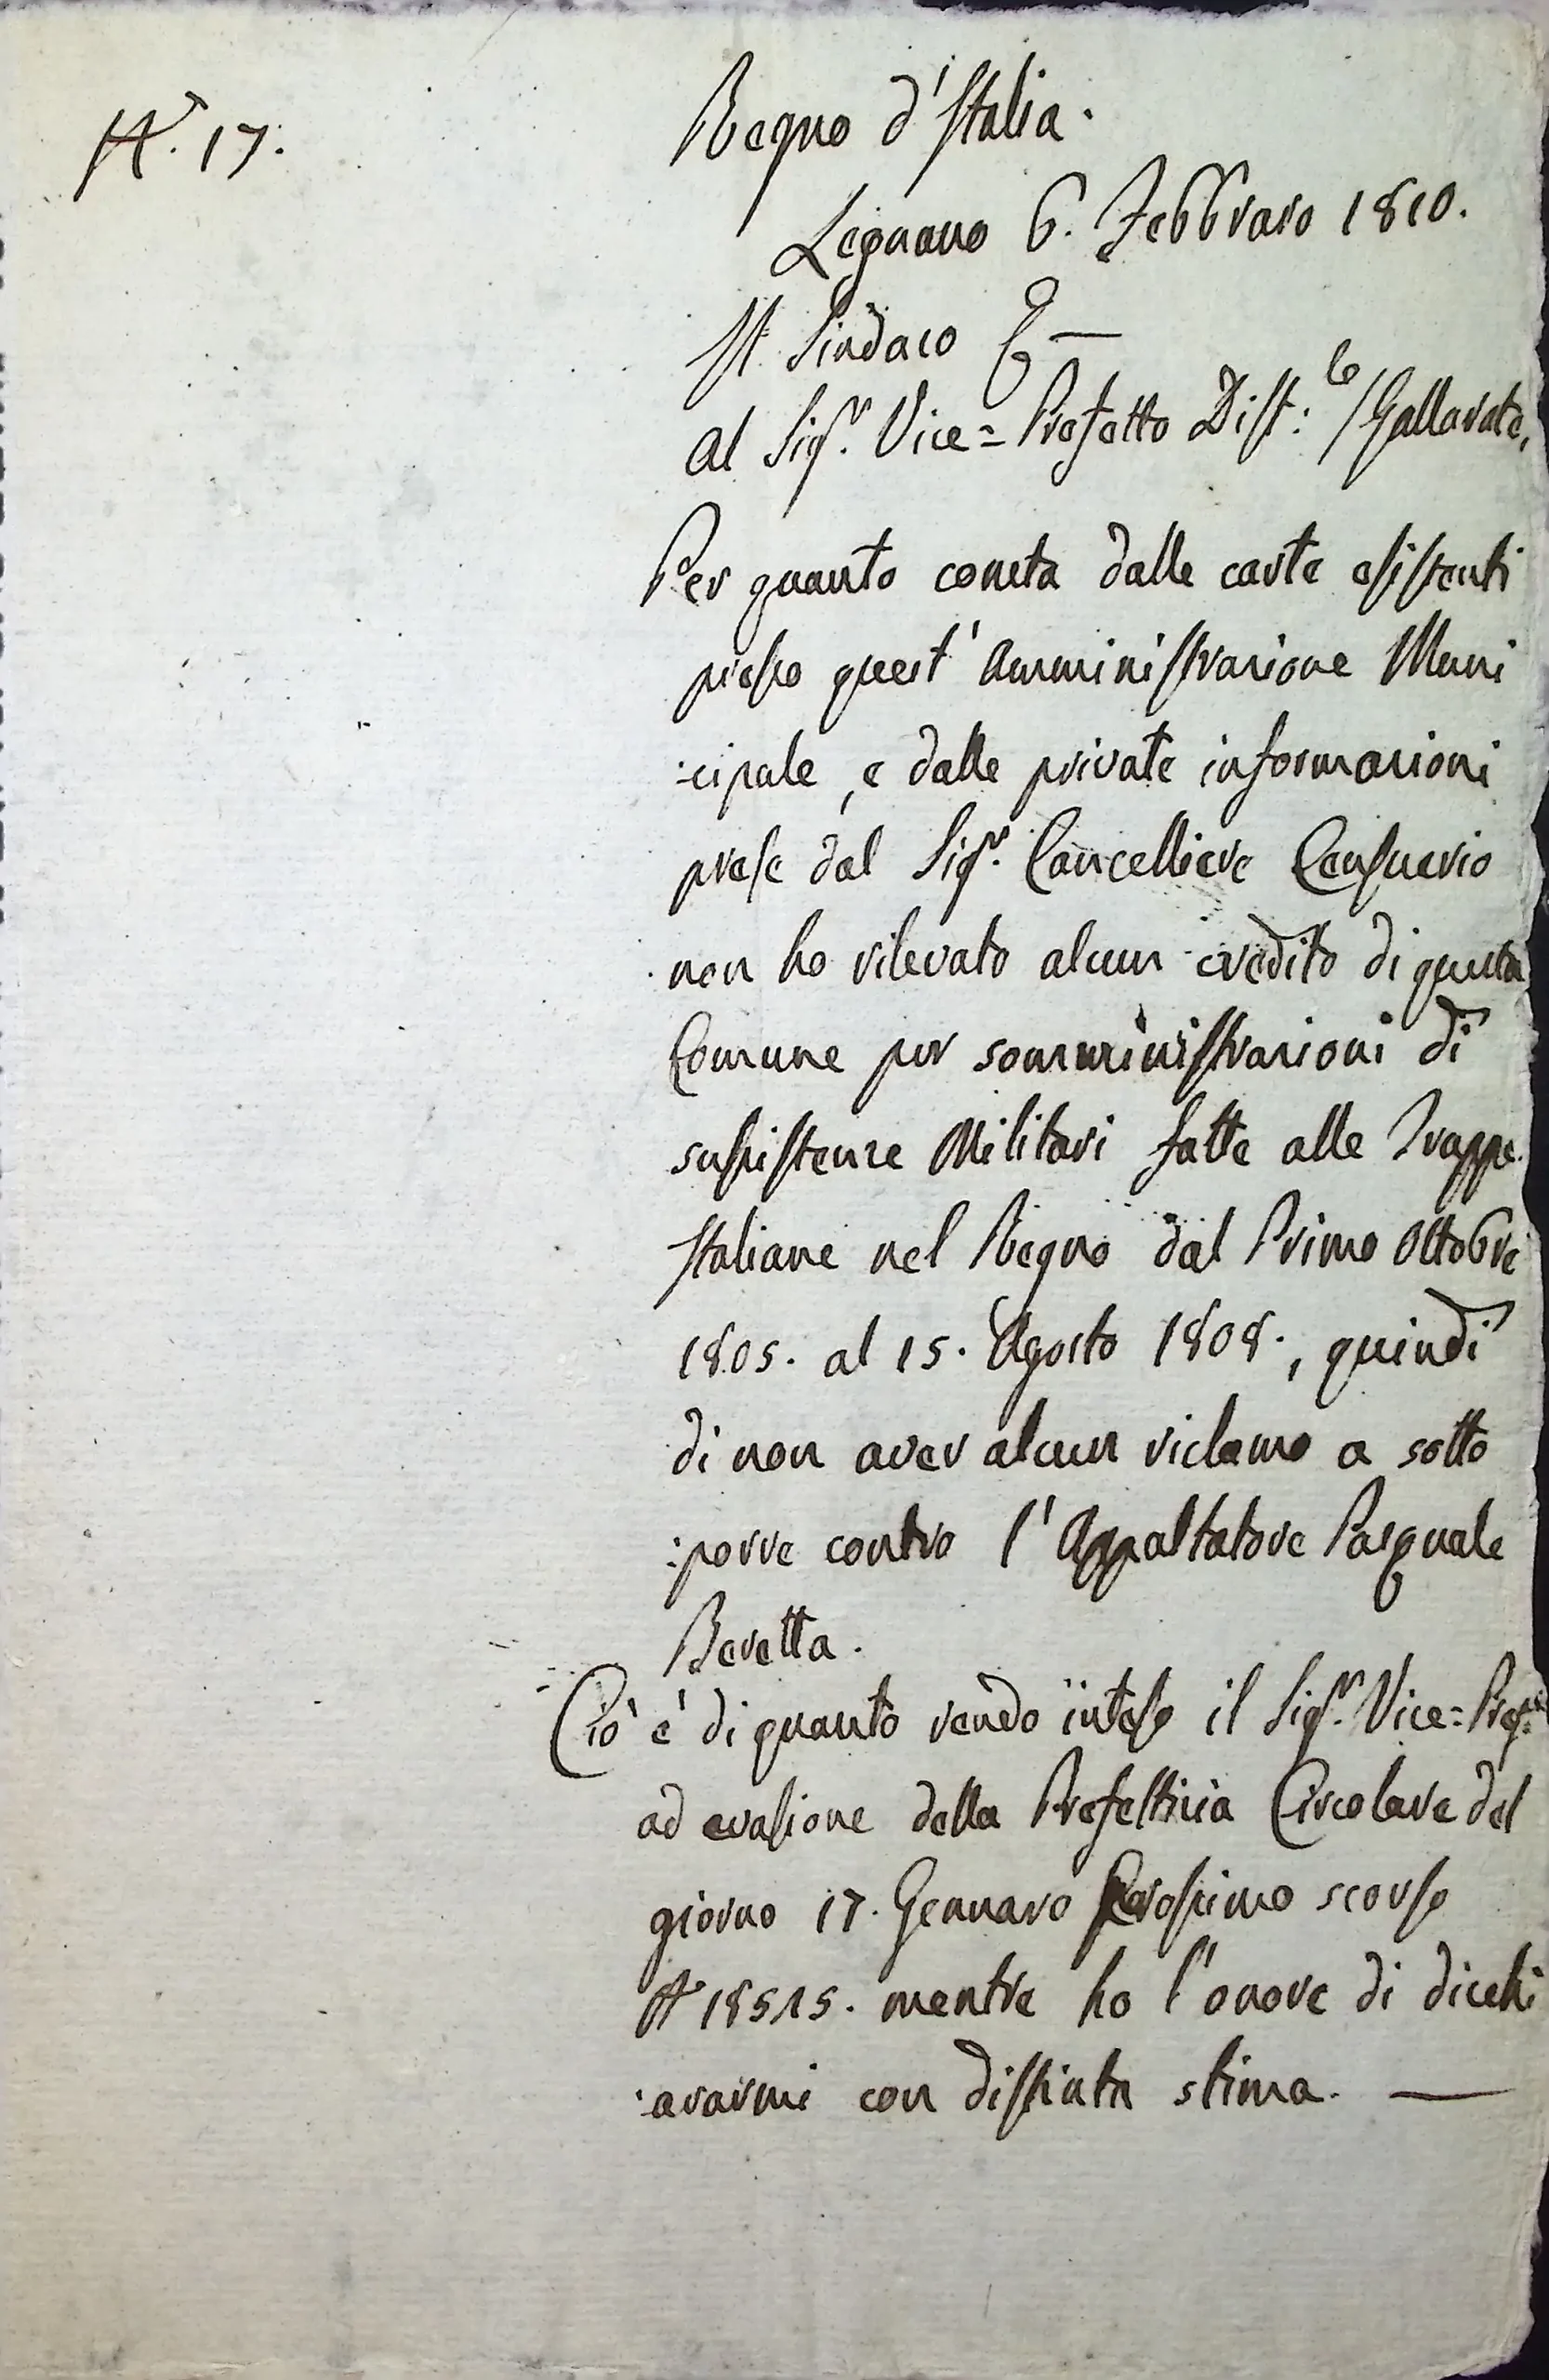 N.° 17.
Regno d'Italia.
Legnano 6. Febbraro 1810.
Il Sindaco
al Sigr. Vice=Prefetto Dist:le / Gallarate,
Per quanto consta dalle carte esistenti
presso quest'Amministrazione Muni
:cipale, e dalle private informazioni
prese dal Sigr. Cancelliere Censuario
non ho rilevato alcun credito di questa
Comune per somministrazioni di
sussistenze Militari fatte alle Truppe
Italiane nel Regno dal Primo Ottobre
1805. al 15. Agosto 1808., quindi
di non aver alcun riclamo a sotto
:porre contro l'Appaltatore Pasquale
Beretta.
Ciò è di quanto rendo inteso il Sigr. Vice=Pref:
ad evasione della Prefettizia Circolare del
giorno 17. Gennaro Prossimo scorso
N° 18515. mentre ho l'onore di dichi
:ararmi con distinta stima. —